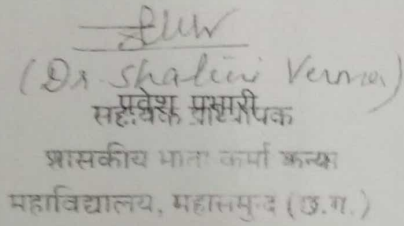 (Dr Shalini Verma)
प्रवेश प्रभारी
सहायक प्राध्यापक
शासकीय माता कर्मा कन्या
महाविद्यालय, महासमुन्द (छ.ग.)